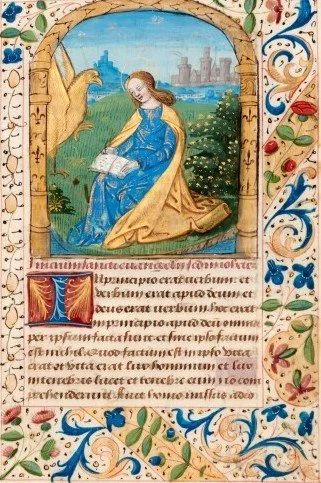 In principio erat verbum et
verbum erat apud deum et
deus erat verbum hoc erat
in principio apud deum
per ipsum facta sunt et sine ipso factum
est nichil Quod factum est in ipso vita
erat et vita erat lux hominum et lux
tenebris lucet et tenebre eam non com
prehenderunt fuit homo missus a deo